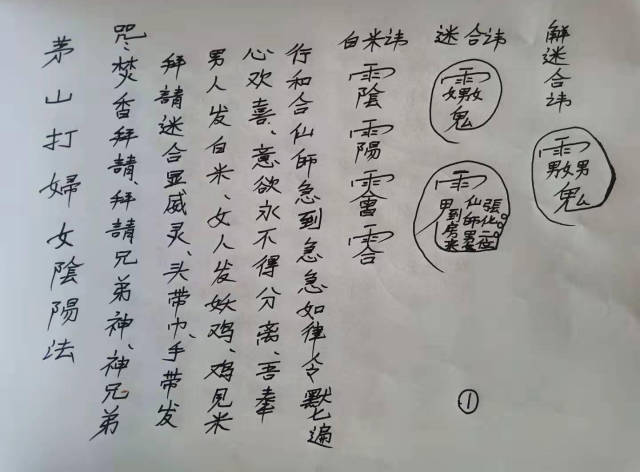 茅山打婦女陰陽法
咒:焚香拜請、拜請兄弟神、神兄弟
拜請迷合显威灵、头带巾、手带发
男人发白米、女人发妖鸡、鸡见米
心欢喜、意欲永不得分离、吾奉
行和合仙師急到急急如律令默七遍
白米讳
迷合讳
解迷合讳
①